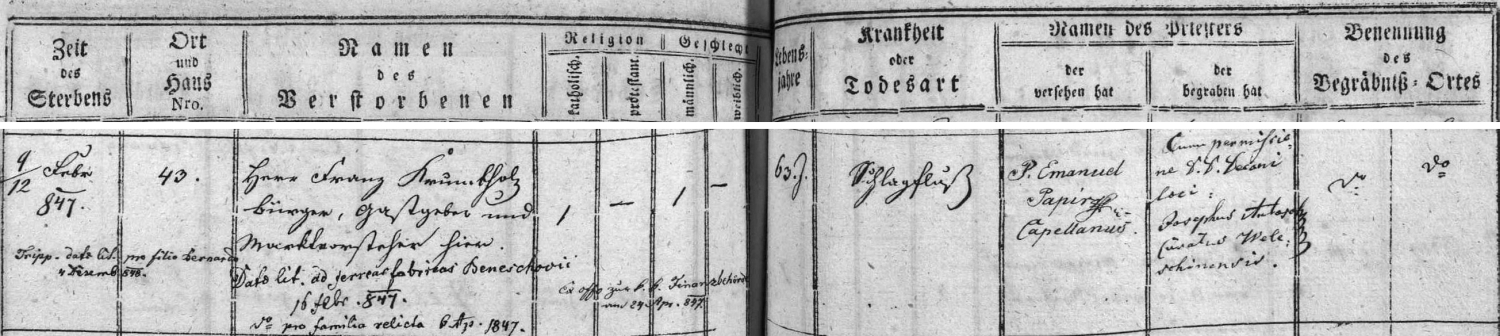 Zeit
des
Sterbens
Ort
und
Haus
Nro.
Namen
des
Verstorbenen
Religion
katholisch.
protestant.
Geschlecht
männlich.
weiblich.
Lebens-
jahre
Krankheit
oder
Todesart
Namen des Priesters
der
versehen hat
der
begraben hat
Benennung
des
Begräbniß-Ortes
9/12 Febr.
847.
43.
Herr Franz Krumbholz
bürger, Gastgeber und
Marktvorsteher hier.
1
—
1
—
63 J.
Schlagfluß
P. Emanuel
Papirz
Capellanus.
Cum permissio-
ne loci:
Josephus
Curatus Wele-
schinensis.
do
do
Tripp. dato lit. pro filio Bernardo
4 Dezemb.
Dato lit. ad ferreas fabricas Beneschovii
16 febr. 847.
do pro familia relicta 6 Ap. 1847.
Ex offo zur k. k. Finanzbehörde
am 24 Apr. 847.